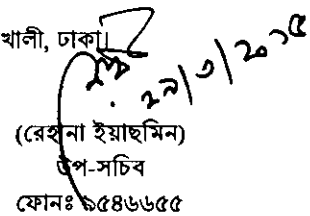 খালী, ঢাকা।
২৯/৩/২০১৫
(রেহানা ইয়াছমিন)
উপ-সচিব
ফোনঃ ৯৫৪৬৬৫৫